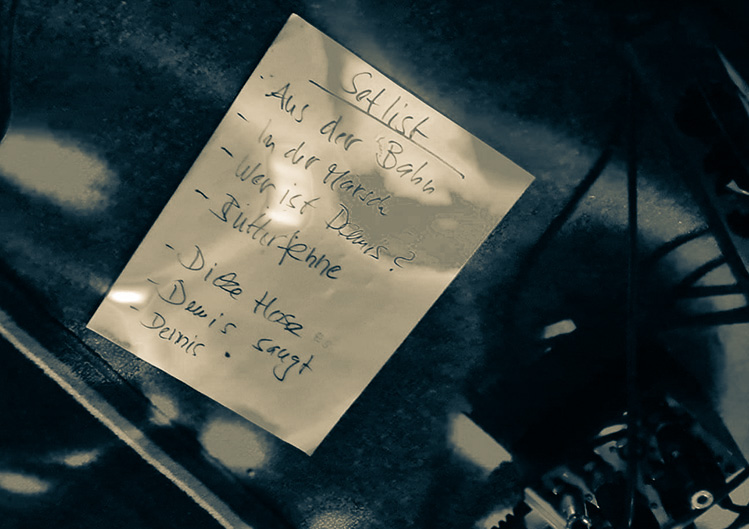 Satlist
- Aus der Bahn
- In der Marsch
- Wer ist Dennis?
- Butterfahne
- Diese Hose
- Dennis saugt
- Dennis.